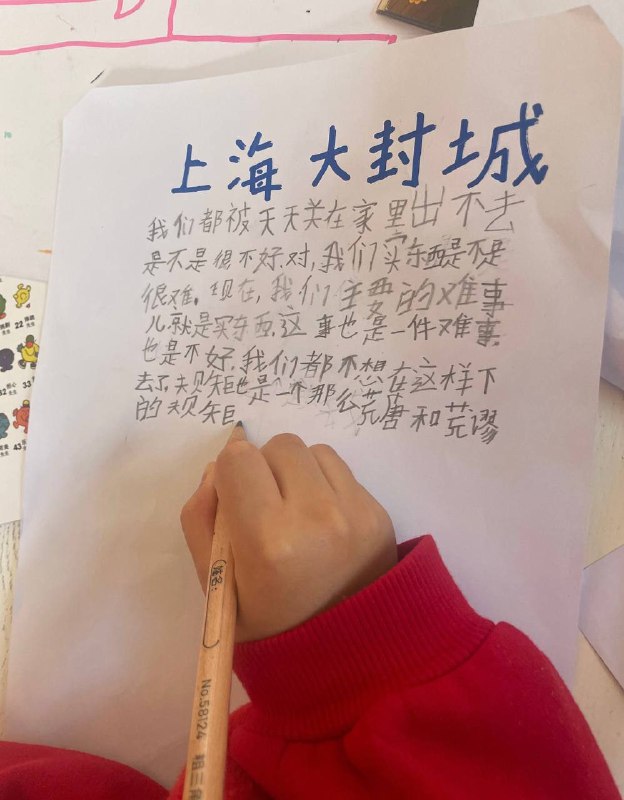 上海大封城
我们都被天天关在家里出不去
是不是很不好对,我们买东西是不是
很难。现在,我们主要的难事
儿就是买东西.这事也是一件难事.
也是不好.我们都不想在这样下
去了.规矩也是一个那么荒唐和荒谬
的规矩
姓名:
No.58124 粗三角
22
33
43